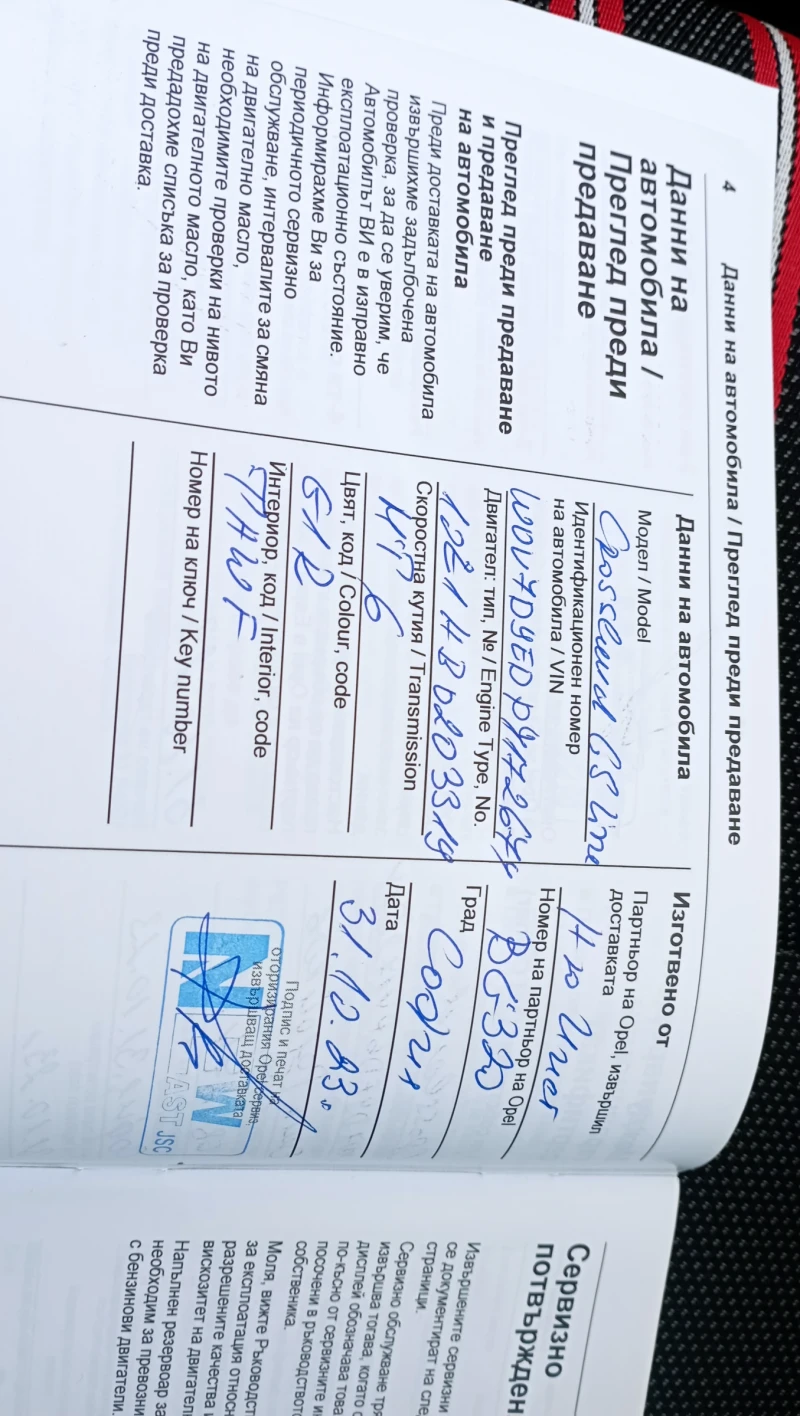 4 Данни на автомобила / Преглед преди предаване
Данни на
автомобила /
Преглед преди
предаване
Преглед преди предаване
и предаване
на автомобила
Преди доставката на автомобила
извършихме задълбочена
проверка, за да се уверим, че
Автомобилът ВИ е в изправно
експлоатационно състояние.
Информирахме Ви за
периодичното сервизно
обслужване, интервалите за смяна
на двигателно масло,
необходимите проверки на нивото
на двигателното масло, като Ви
предадохме списъка за проверка
преди доставка.
Данни на автомобила
Модел / Model
Crossland GS Line
Идентификационен номер
на автомобила / VIN
Двигател: тип, № / Engine Type, No.
Скоростна кутия / Transmission
МТ 6
Цвят, код / Colour, code
G1R
Интериор, код / Interior, code
Номер на ключ / Key number
Изготвено от
Партньор на Opel, извършил
доставката
Номер на партньор на Opel
BG320
Град
София
Дата
31.10.23г
Подпис и печат на
оторизирания Opel сервиз,
извършващ доставката
NEW
AST JSC
Сервизно
потвържден
Извършените сервизни
се документират на сле
страници.
Сервизно обслужване тря
извършва тогава, когато
дисплей обозначава това
по-късно от сервизните и
посочени в ръководството
собственика.
Моля, вижте Ръководст
за експлоатация относн
разрешените качества
вискозитет на двигател
Напълнен резервоар за
необходим за превозни
с бензинови двигатели.